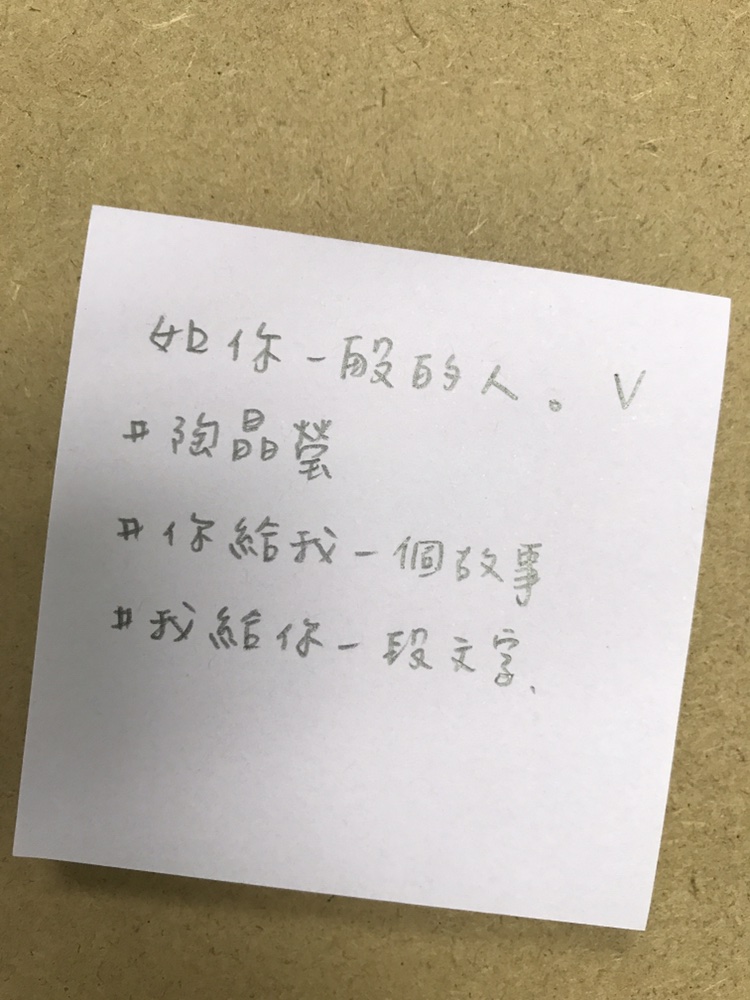 如你一般的人。V
#陶晶瑩
#你給我一個故事
#我給你一段文字、